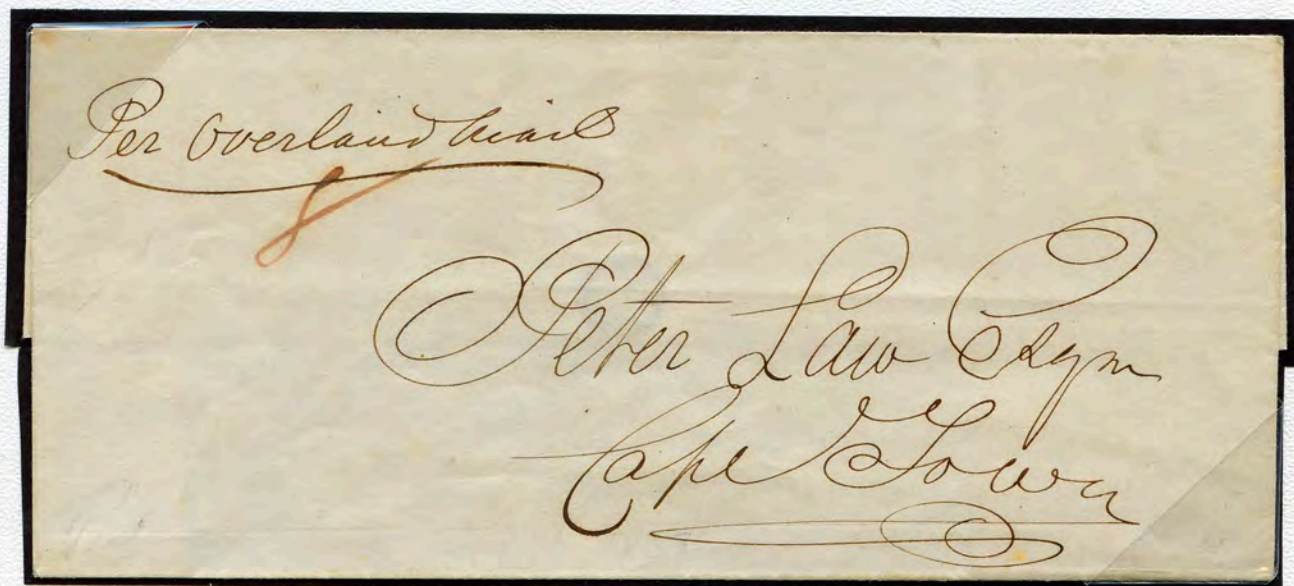 Per Overland Mail
8
Peter Law Esqr
Cape Town